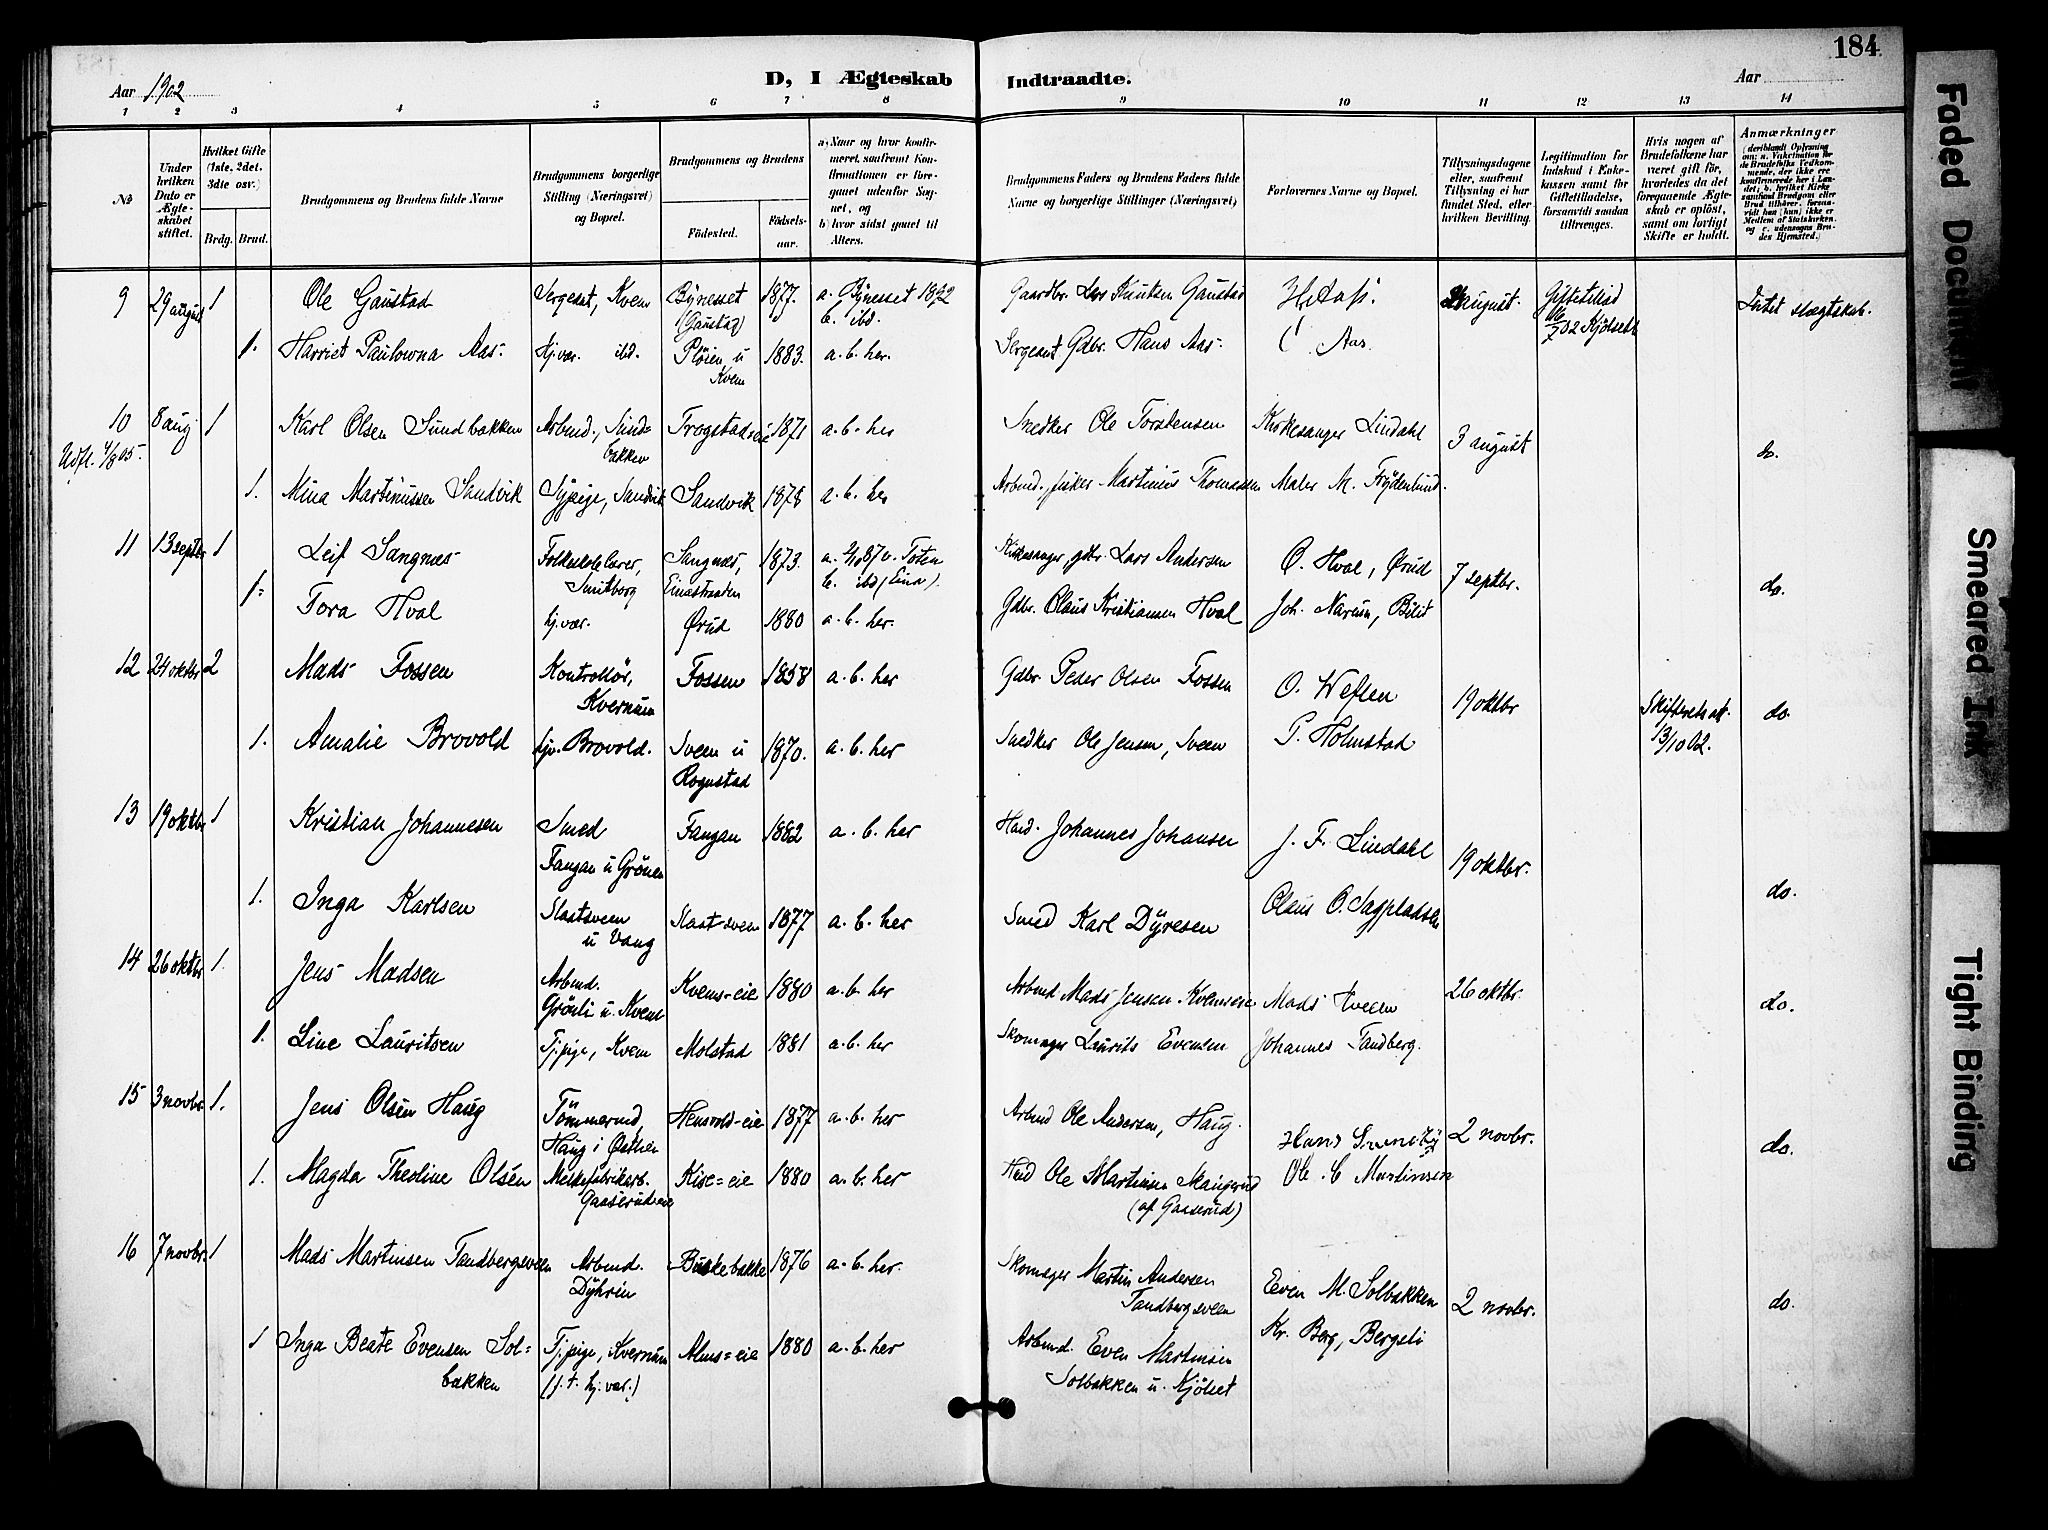 184
Aar 1902
D, I Ægteskab Indtraadte.
Aar
1 2 3 4 5 6 7 8 9 10 11 12 13 14
No
Under hvilken Dato er Ægteskabet stiftet.
Hvilket Gifte (1ste, 2det, 3die osv.)
Brdg. Brud.
Brudgommens og Brudens fulde Navne
Brudgommens borgerlige Stilling (Næringsvei) og Bopæl.
Brudgommens og Brudens
Fødested.
Fødselsaar.
a) Naar og hvor konfirmeret, saafremt Konfirmationen er foregaaet udenfor Sognet, og
b) hvor sidst gaaet til Alters.
Brudgommens Faders og Brudens Faders fulde Navne og borgerlige Stillinger (Næringsvei)
Forlovernes Navne og Bopæl.
Tillysningsdagene eller, saafremt Tillysning ei har fundet Sted, efter hvilken Bevilling.
Legitimation for Indskud i Enkekassen samt for Giftetilladelse, forsaavidt saadan tiltrænges.
Hvis nogen af Brudefolkene har været gift før, hvorledes da det foregaaende Ægteskab er opløst, samt om lovligt Skifte er holdt.
Anmærkninger
(deriblandt Oplysning om: a. Vakcination for de Brudefolks Vedkommende, der ikke ere konfirmerede her i Landet; b. hvilket Kirkesamfund Brudgom eller Brud tilhører, forsaavidt han (hun) ikke er Medlem af Statskirken, og c. udensogns Brudes Hjemsted.)
9 29 august 1 Ole Gaustad Sergeant, Kvem Bynesset (Gaustad) 1877. a. Bynesset 1892 b. ibd. Gaardbr. Lars Knutsen Gaustad H Aas. august. Giftetillad Kjölseth Intet slægtskab.
1. Harriet Paulowna Aas. Hj.vær. ibd. Pløien u Kvem 1883. a. b. her. Sergeant Gdbr. Hans Aas. Aas.
10 8 aug 1 Karl Olsen Sundbakken Arbmd., Sundbakken Trogstadeie 1871 a. b. her Snedker Ole Torstensen Kirkesanger Lindahl 3 august do.
Udfl. 4/8 05.
1. Mina Martinussen Sandvik Sypige, Sandvik Sandvik 1878 a. b. her Arbmd. fisker Martinius Thomassen Maler M. Frydenlund.
11 13 septbr 1 Leif Sangnæs Folkeskolelærer, Smitborg Sangnæs, Einastranden 1873. a. Toten b. ibd (Eina). Kirkesanger, gdbr. Lars Andersen O. Hval, Ørud 7 septbr. do.
1. Tora Hval hj.vær. Ørud 1880 a. b. her. Gdbr. Olaus Kristiansen Hval Joh. Narum, Bilit
12 24 oktbr 2 Mads Fossen Kontrollör, Kvernum Fossen 1858 a. b. her Gdbr Peder Olsen Fossen O. Weflen 19 oktbr Skifteretsatt. 13/10 02. do.
1. Amalie Brovold Brovold. Sveen u Rognstad 1870. a. b. her Snedker Ole Jensen, Sveen P. Holmstad
13 19 oktbr 1 Kristian Johannesen Smed Fangan u Grönen Fangan 1882 a. b. her Hmd. Johannes Johansen J. F. Lindahl 19 oktbr. do.
1. Inga Karlsen Slaatsveen u Vang Slaatsveen 1877 a. b. her Smed Karl Dyresen Olaus O. Sagpladsen
14 26 oktbr 1. Jens Madsen Arbmd. Grönli u. Kvem Kvems-eie 1880 a. b. her Arbmd Mads Jensen Kvemseie Mads Hveem 26 oktbr. do.
1. Line Lauritsen Tj.pige, Kvem Molstad 1881 a. b. her Skomager Laurits Evensen Johannes Tandberg.
15 3 novbr. 1. Jens Olsen Haug Tömmermd, Haug i Østlien Hensvold-eie 1877 a. b. her Arbmd Ole Andersen, Haug. Hans 2 novbr. do.
1. Magda Theoline Olsen Melkefabrikarb. Gaaserudeie Kise-eie 1880 a. b. her Hmd Ole Martinsen (af Gaaserud) Ole C Martinsen
16 7 novbr. 1 Mads Martinsen Tandbergsveen Arbmd. Dyhrin Buskebakke 1876 a. b. her. Skomager Martin Andersen Tandbergsveen Even M. Solbakken 2 novbr. do.
1 Inga Beate Evensen Solbakken Tj.pige, Kvernum (f. t. hj.vær.) Alms-eie 1880 a. b. her Arbmd. Even Martinsen Solbakken u. Kjölset Kr. Berg, Bergsli
Faded Document
Smeared Ink
Tight Binding